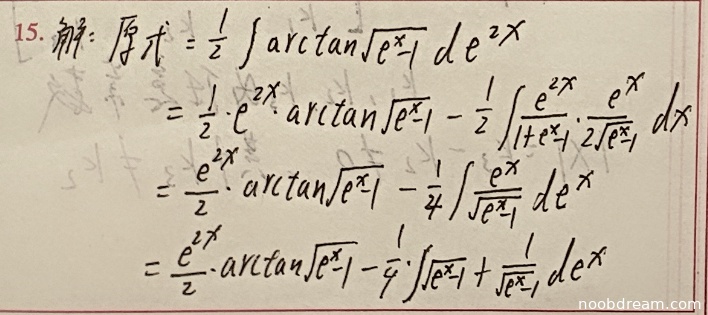 15. 解: 原式 = 1/2 ∫ arctan√(e^x-1) d e^(2x)
= 1/2 · e^(2x) · arctan√(e^x-1) - 1/2 ∫ e^(2x)/(1+e^x-1) · e^x/(2√(e^x-1)) dx
= e^(2x)/2 · arctan√(e^x-1) - 1/4 ∫ e^x/√(e^x-1) de^x
= e^(2x)/2 · arctan√(e^x-1) - 1/4 · ∫ √(e^x-1) + 1/√(e^x-1) de^x
noobdream.com